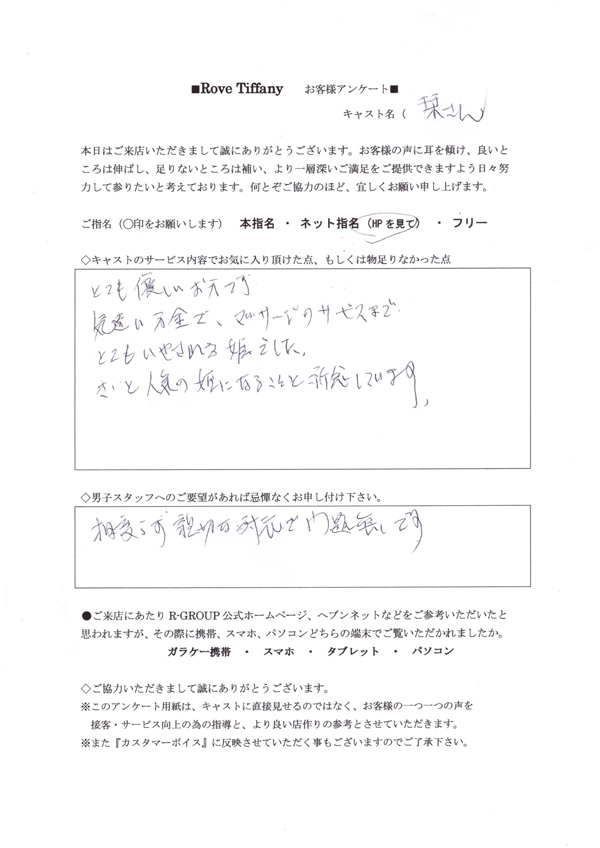 ■Rove Tiffany お客様アンケート■
キャスト名( 栞さん)
本日はご来店いただきまして誠にありがとうございます。お客様の声に耳を傾け、良いと
ころは伸ばし、足りないところは補い、より一層深いご満足をご提供できますよう日々努
力して参りたいと考えております。何とぞご協力のほど、宜しくお願い申し上げます。
ご指名(〇印をお願いします) 本指名 ・ ネット指名(HPを見て) ・ フリー
◇キャストのサービス内容でお気に入り頂けた点、もしくは物足りなかった点
とても優しいお方です
気遣い万全で、マッサージのサービスまで
とてもいやされる姫でした。
きっと人気の姫になることと祈念しています。
◇男子スタッフへのご要望があれば忌憚なくお申し付け下さい。
相変らず親切な対応で問題無しです
●ご来店にあたり R-GROUP 公式ホームページ、ヘブンネットなどをご参考いただいたと
思われますが、その際に携帯、スマホ、パソコンどちらの端末でご覧いただかれましたか。
ガラケー携帯 ・ スマホ ・ タブレット ・ パソコン
◇ご協力いただきまして誠にありがとうございます。
※このアンケート用紙は、キャストに直接見せるのではなく、お客様の一つ一つの声を
接客・サービス向上の為の指導と、より良い店作りの参考とさせていただきます。
※また『カスタマーボイス』に反映させていただく事もございますのでご了承下さい。